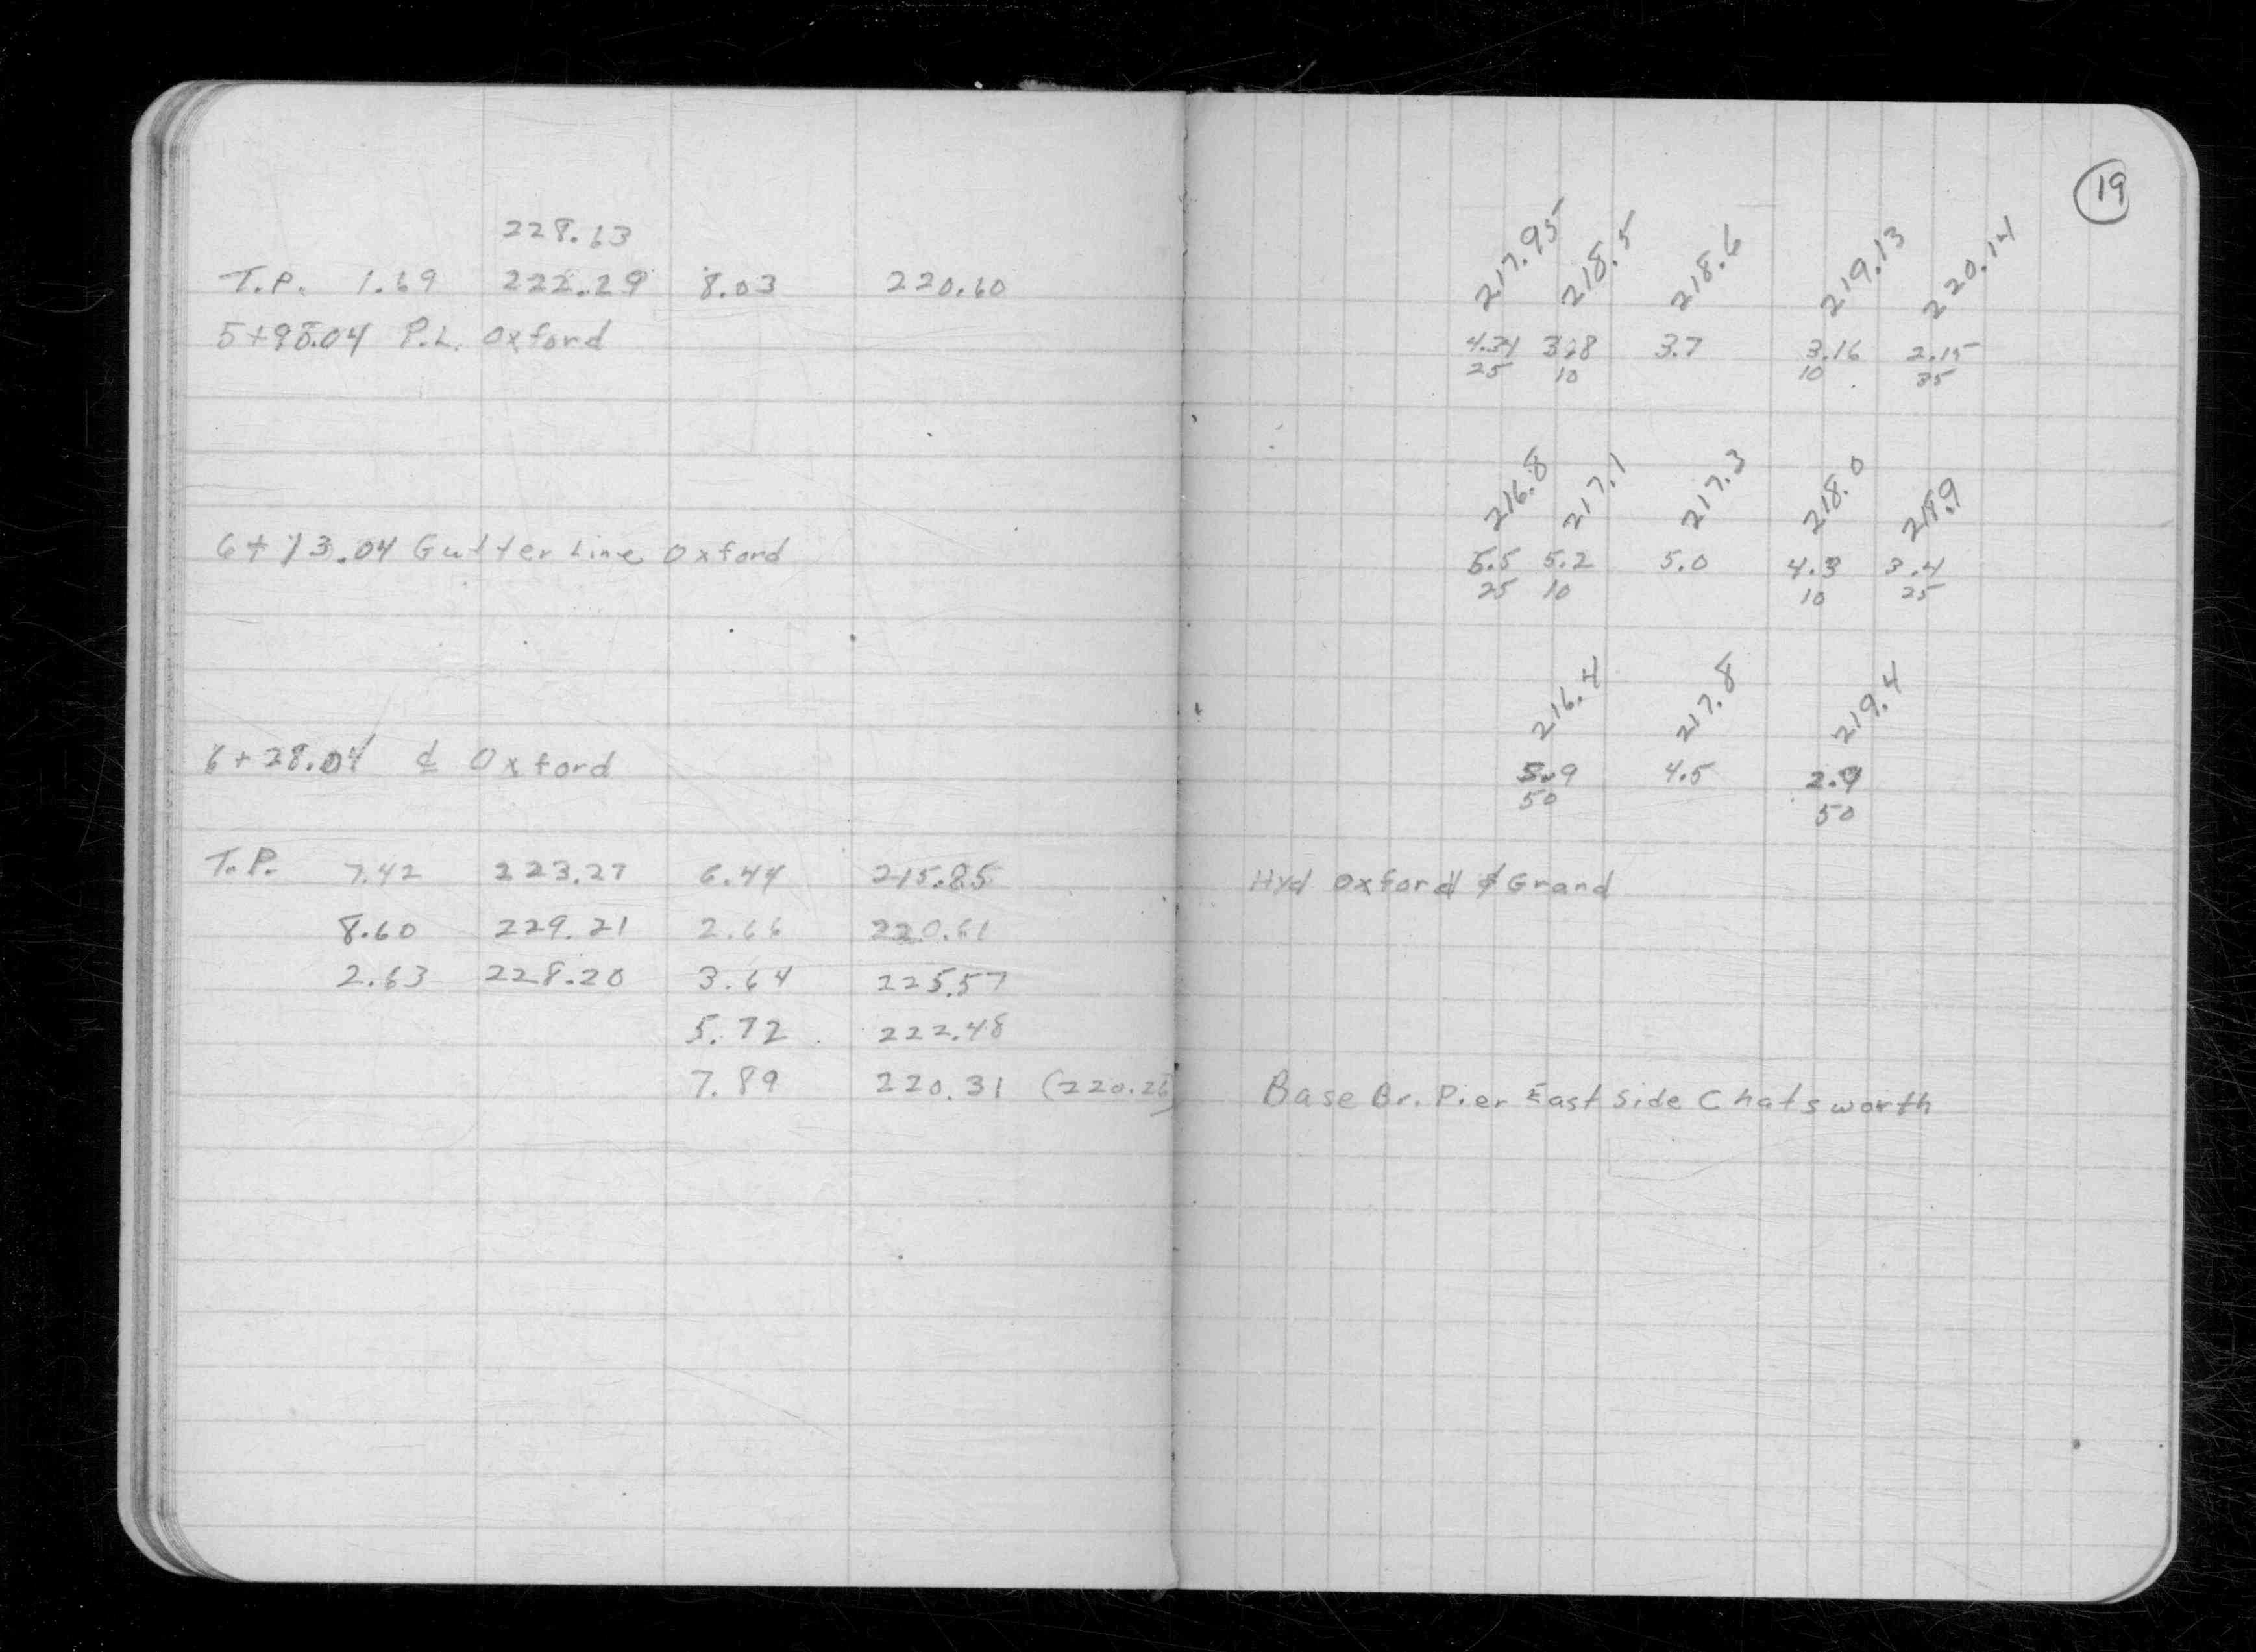 228.63
T.P. 1.69 222.29 8.03 220.60
5+98.04 P.L. Oxford
6+13.04 Gutter Line Oxford
6+28.04 ℄ Oxford
T.P. 7.42 223.27 6.44 215.85
8.60 229.21 2.66 220.61
2.63 228.20 3.64 225.57
5.72 222.48
7.89 220.31 (220.26)
19
217.95 218.5 218.6 219.13 220.14
4.34 3.8 3.7 3.16 2.15
25 10 10 35
216.8 217.1 217.3 218.0 218.9
5.5 5.2 5.0 4.3 3.4
25 10 10 25
216.4 217.8 219.4
5.9 4.5 2.9
50 50
Hyd Oxford & Grand
Base Br. Pier East Side Chatsworth